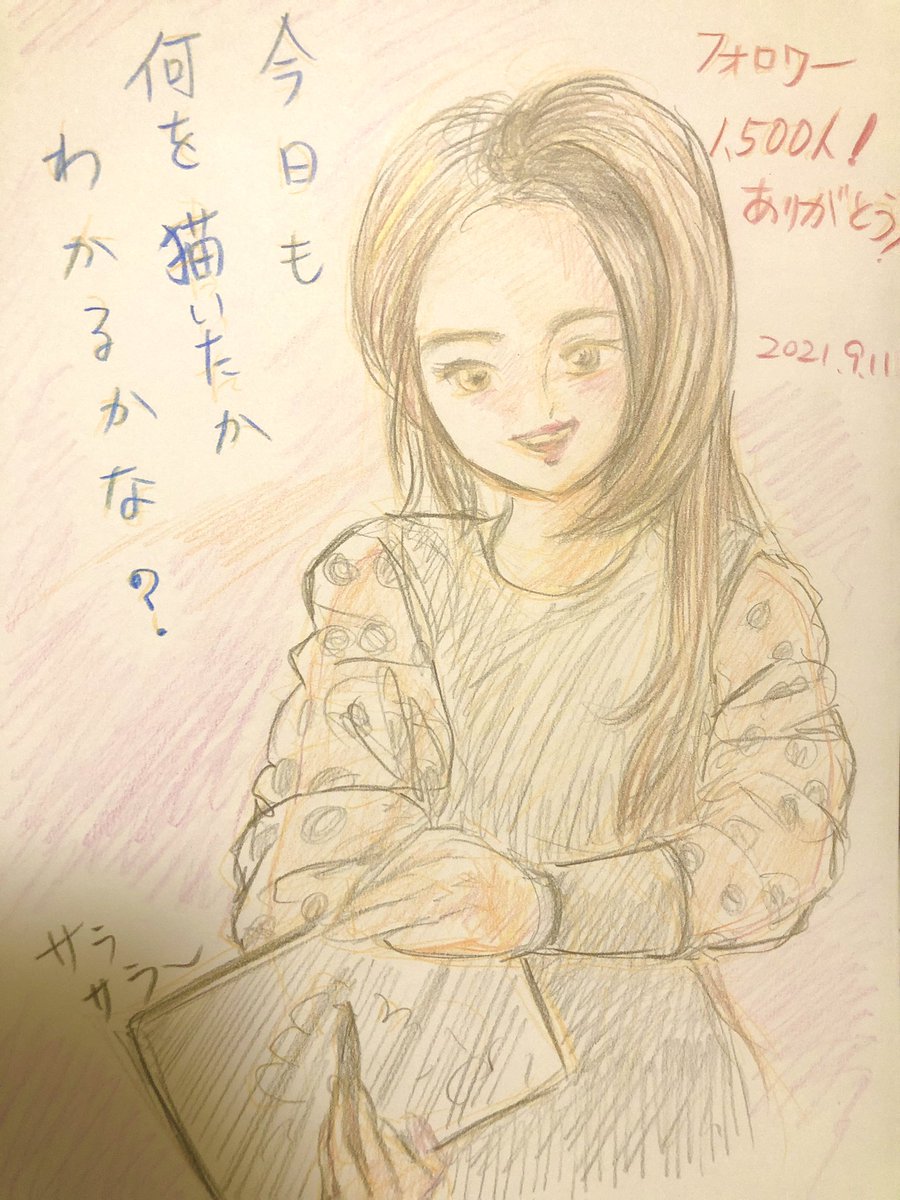 今日も
何を描いたか
わかるかな?
フォロワー
1,500人!
ありがとう!
2021.9.11
サラ
サラ〜